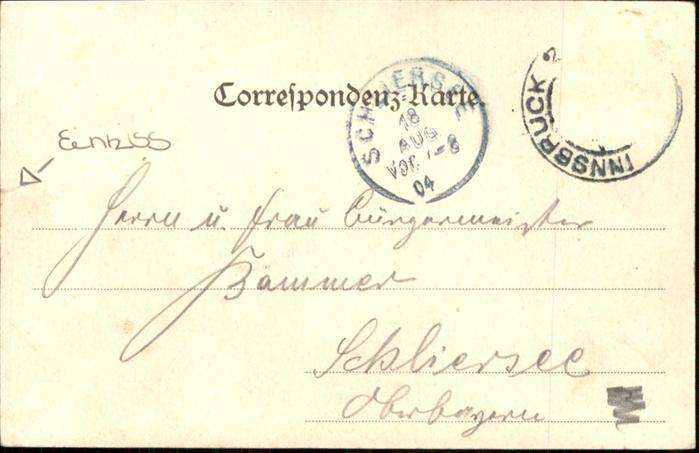 Correspondenz-Karte.
SCHLIERSEE
18
AUG
VOR. 7-8
04
INNSBRUCK 2
Einriss
Herrn u. Frau Bürgermeister
Schliersee
Oberbayern